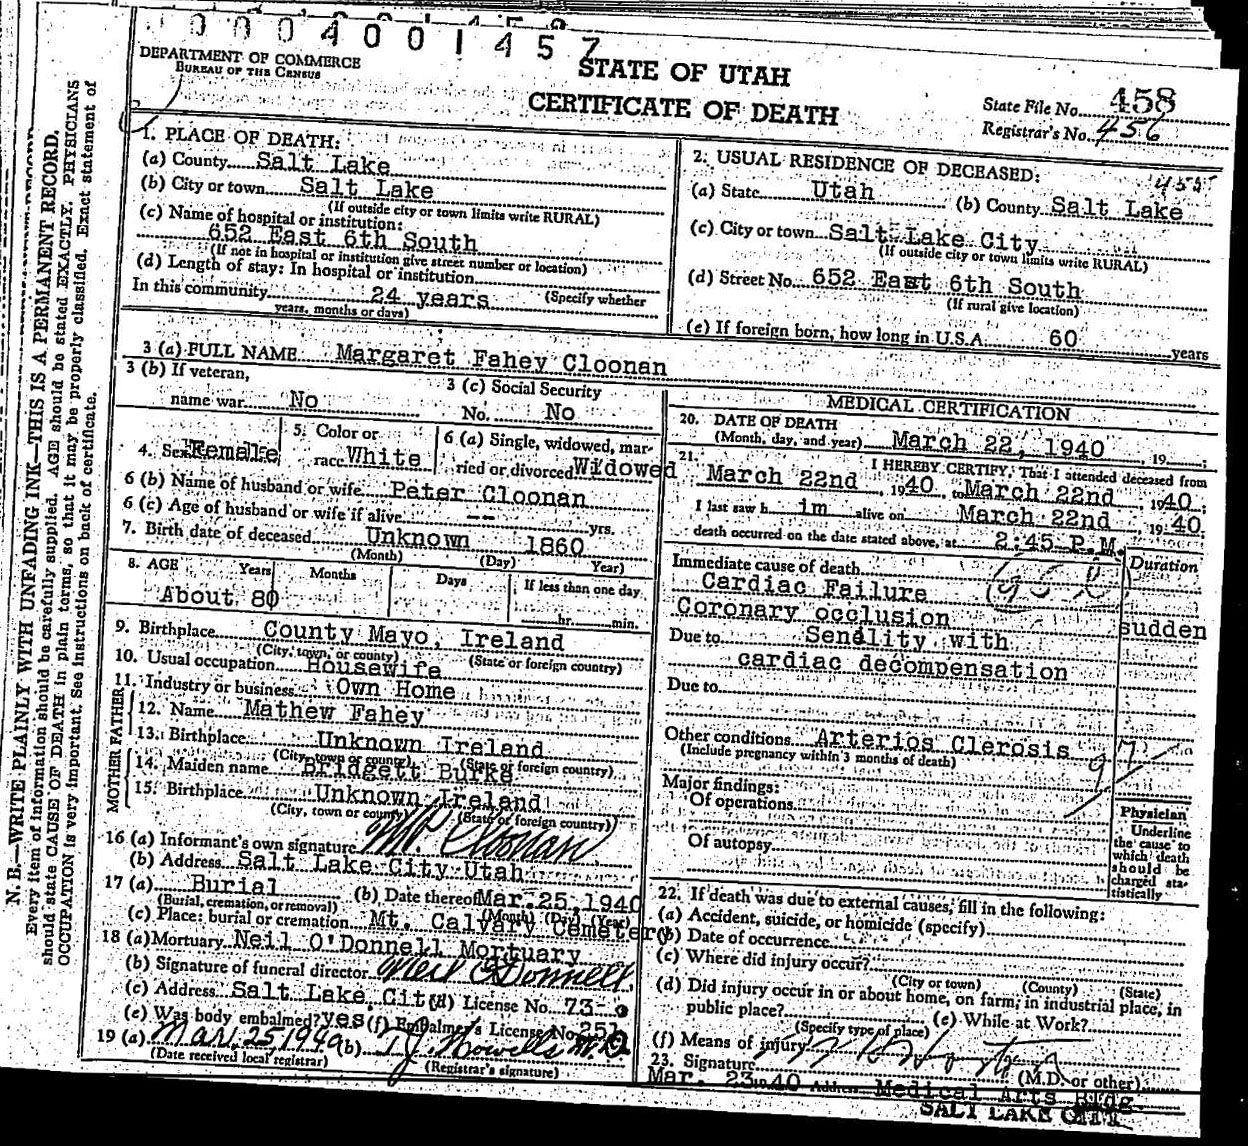 0 0 0 4 0 0 1 4 5 7
DEPARTMENT OF COMMERCE
BUREAU OF THE CENSUS
STATE OF UTAH
CERTIFICATE OF DEATH
State File No. 458
Registrar's No. 456
N. B.—WRITE PLAINLY WITH UNFADING INK—THIS IS A PERMANENT RECORD.
Every item of information should be carefully supplied. AGE should be stated EXACTLY. PHYSICIANS
should state CAUSE OF DEATH in plain terms, so that it may be properly classified. Exact statement of
OCCUPATION is very important. See instructions on back of certificate.
1. PLACE OF DEATH:
(a) County Salt Lake
(b) City or town Salt Lake
(If outside city or town limits write RURAL)
(c) Name of hospital or institution:
652 East 6th South
(If not in hospital or institution give street number or location)
(d) Length of stay: In hospital or institution
In this community 24 years (Specify whether
years, months or days)
2. USUAL RESIDENCE OF DECEASED:
455
(a) State Utah (b) County Salt Lake
(c) City or town Salt Lake City
(If outside city or town limits write RURAL)
(d) Street No. 652 East 6th South
(If rural give location)
(e) If foreign born, how long in U.S.A. 60 years
3 (a) FULL NAME Margaret Fahey Cloonan
3 (b) If veteran,
name war No
3 (c) Social Security
No. No
4. Sex Female
5. Color or
race White
6 (a) Single, widowed, mar-
ried or divorced Widowed
6 (b) Name of husband or wife Peter Cloonan
6 (c) Age of husband or wife if alive -- yrs.
7. Birth date of deceased Unknown 1860
(Month) (Day) Year)
8. AGE Years Months Days If less than one day
About 80 hr. min.
9. Birthplace County Mayo, Ireland
(City, town, or county) (State or foreign country)
10. Usual occupation Housewife
11. Industry or business Own Home
FATHER
12. Name Mathew Fahey
13. Birthplace Unknown Ireland
(City, town or county) (State or foreign country)
MOTHER
14. Maiden name Bridgett Burke
15. Birthplace Unknown Ireland
(City, town or county) (State or foreign country)
16 (a) Informant's own signature Cloonan
(b) Address Salt Lake City Utah
17 (a) Burial (b) Date thereof Mar. 25, 1940
(Burial, cremation, or removal) (Month) (Day) (Year)
(c) Place: burial or cremation Mt. Calvary Cemetery
18 (a) Mortuary Neil O'Donnell Mortuary
(b) Signature of funeral director Neil O'Donnell
(c) Address Salt Lake City (d) License No. 73-
(e) Was body embalmed? yes (f) Embalmer's License No. 251
19 (a) Mar. 25 1940 (b) T.J. Howells M.D.
(Date received local registrar) (Registrar's signature)
MEDICAL CERTIFICATION
20. DATE OF DEATH
(Month, day, and year) March 22, 1940 , 19 ;
21. I HEREBY CERTIFY, That I attended deceased from
March 22nd , 1940, to March 22nd , 1940;
I last saw h im alive on March 22nd 1940.
death occurred on the date stated above, at 2:45 P.M.
Immediate cause of death Duration
Cardiac Failure
Coronary occlusion sudden
Due to Senility with
cardiac decompensation
Due to
Other conditions Arterios Clerosis 97
(Include pregnancy within 3 months of death)
Major findings:
Of operations
Of autopsy
Physician
Underline
the cause to
which death
should be
charged sta-
tistically
22. If death was due to external causes, fill in the following:
(a) Accident, suicide, or homicide (specify)
(b) Date of occurrence
(c) Where did injury occur?
(City or town) (County) (State)
(d) Did injury occur in or about home, on farm, in industrial place, in
public place? (e) While at Work?
(Specify type of place)
(f) Means of injury
23. Signature (M.D. or other)
Mar. 23 1940 Address Medical Arts Bldg.
SALT LAKE CITY